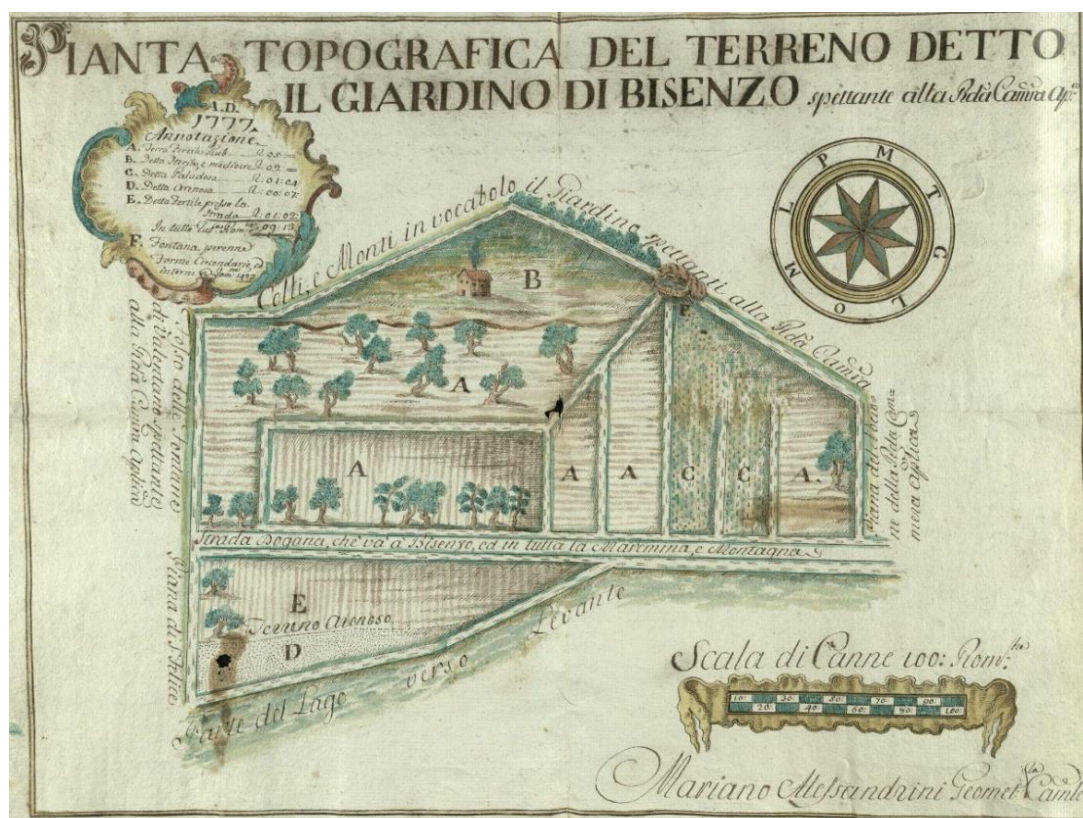 PIANTA TOPOGRAFICA DEL TERRENO DETTO
IL GIARDINO DI BISENZO spettante alla Rda Camra Ap
A.D.
1777
Annotazione
A. Terra Fertile Rub R. 05
B. Detta Sterile, e mediocre R. 02
C. Detta Paludosa R. 01:04
D. Detta Arenosa R. 00:07
E. Detta Fertile presso la
Strada R. 01:02
In tutto
F. Fontana perenne
Formo Circondario, ed
interni
L P M T G L O M
Colli, e Monti in vocabolo il Giardino spettanti alla Rda Camra
Fosso delle Fontane
di Valentano spettante
alla Rda Camra Aplica
Piana
ne della Rda Ca
mera Aplica
Piana di S. Felice
B
F
A
A
A
A
C
C
A.
Strada Dogana, che va a Bisenzo, ed in tutta la Maremma, e Montagna
E
Terreno Arenoso
D
Parte del Lago verso Levante
Scala di Canne 100: Rom
10: 30: 50: 70: 90:
20: 40: 60: 80: 100:
Mariano Alessandrini Geomet Camle